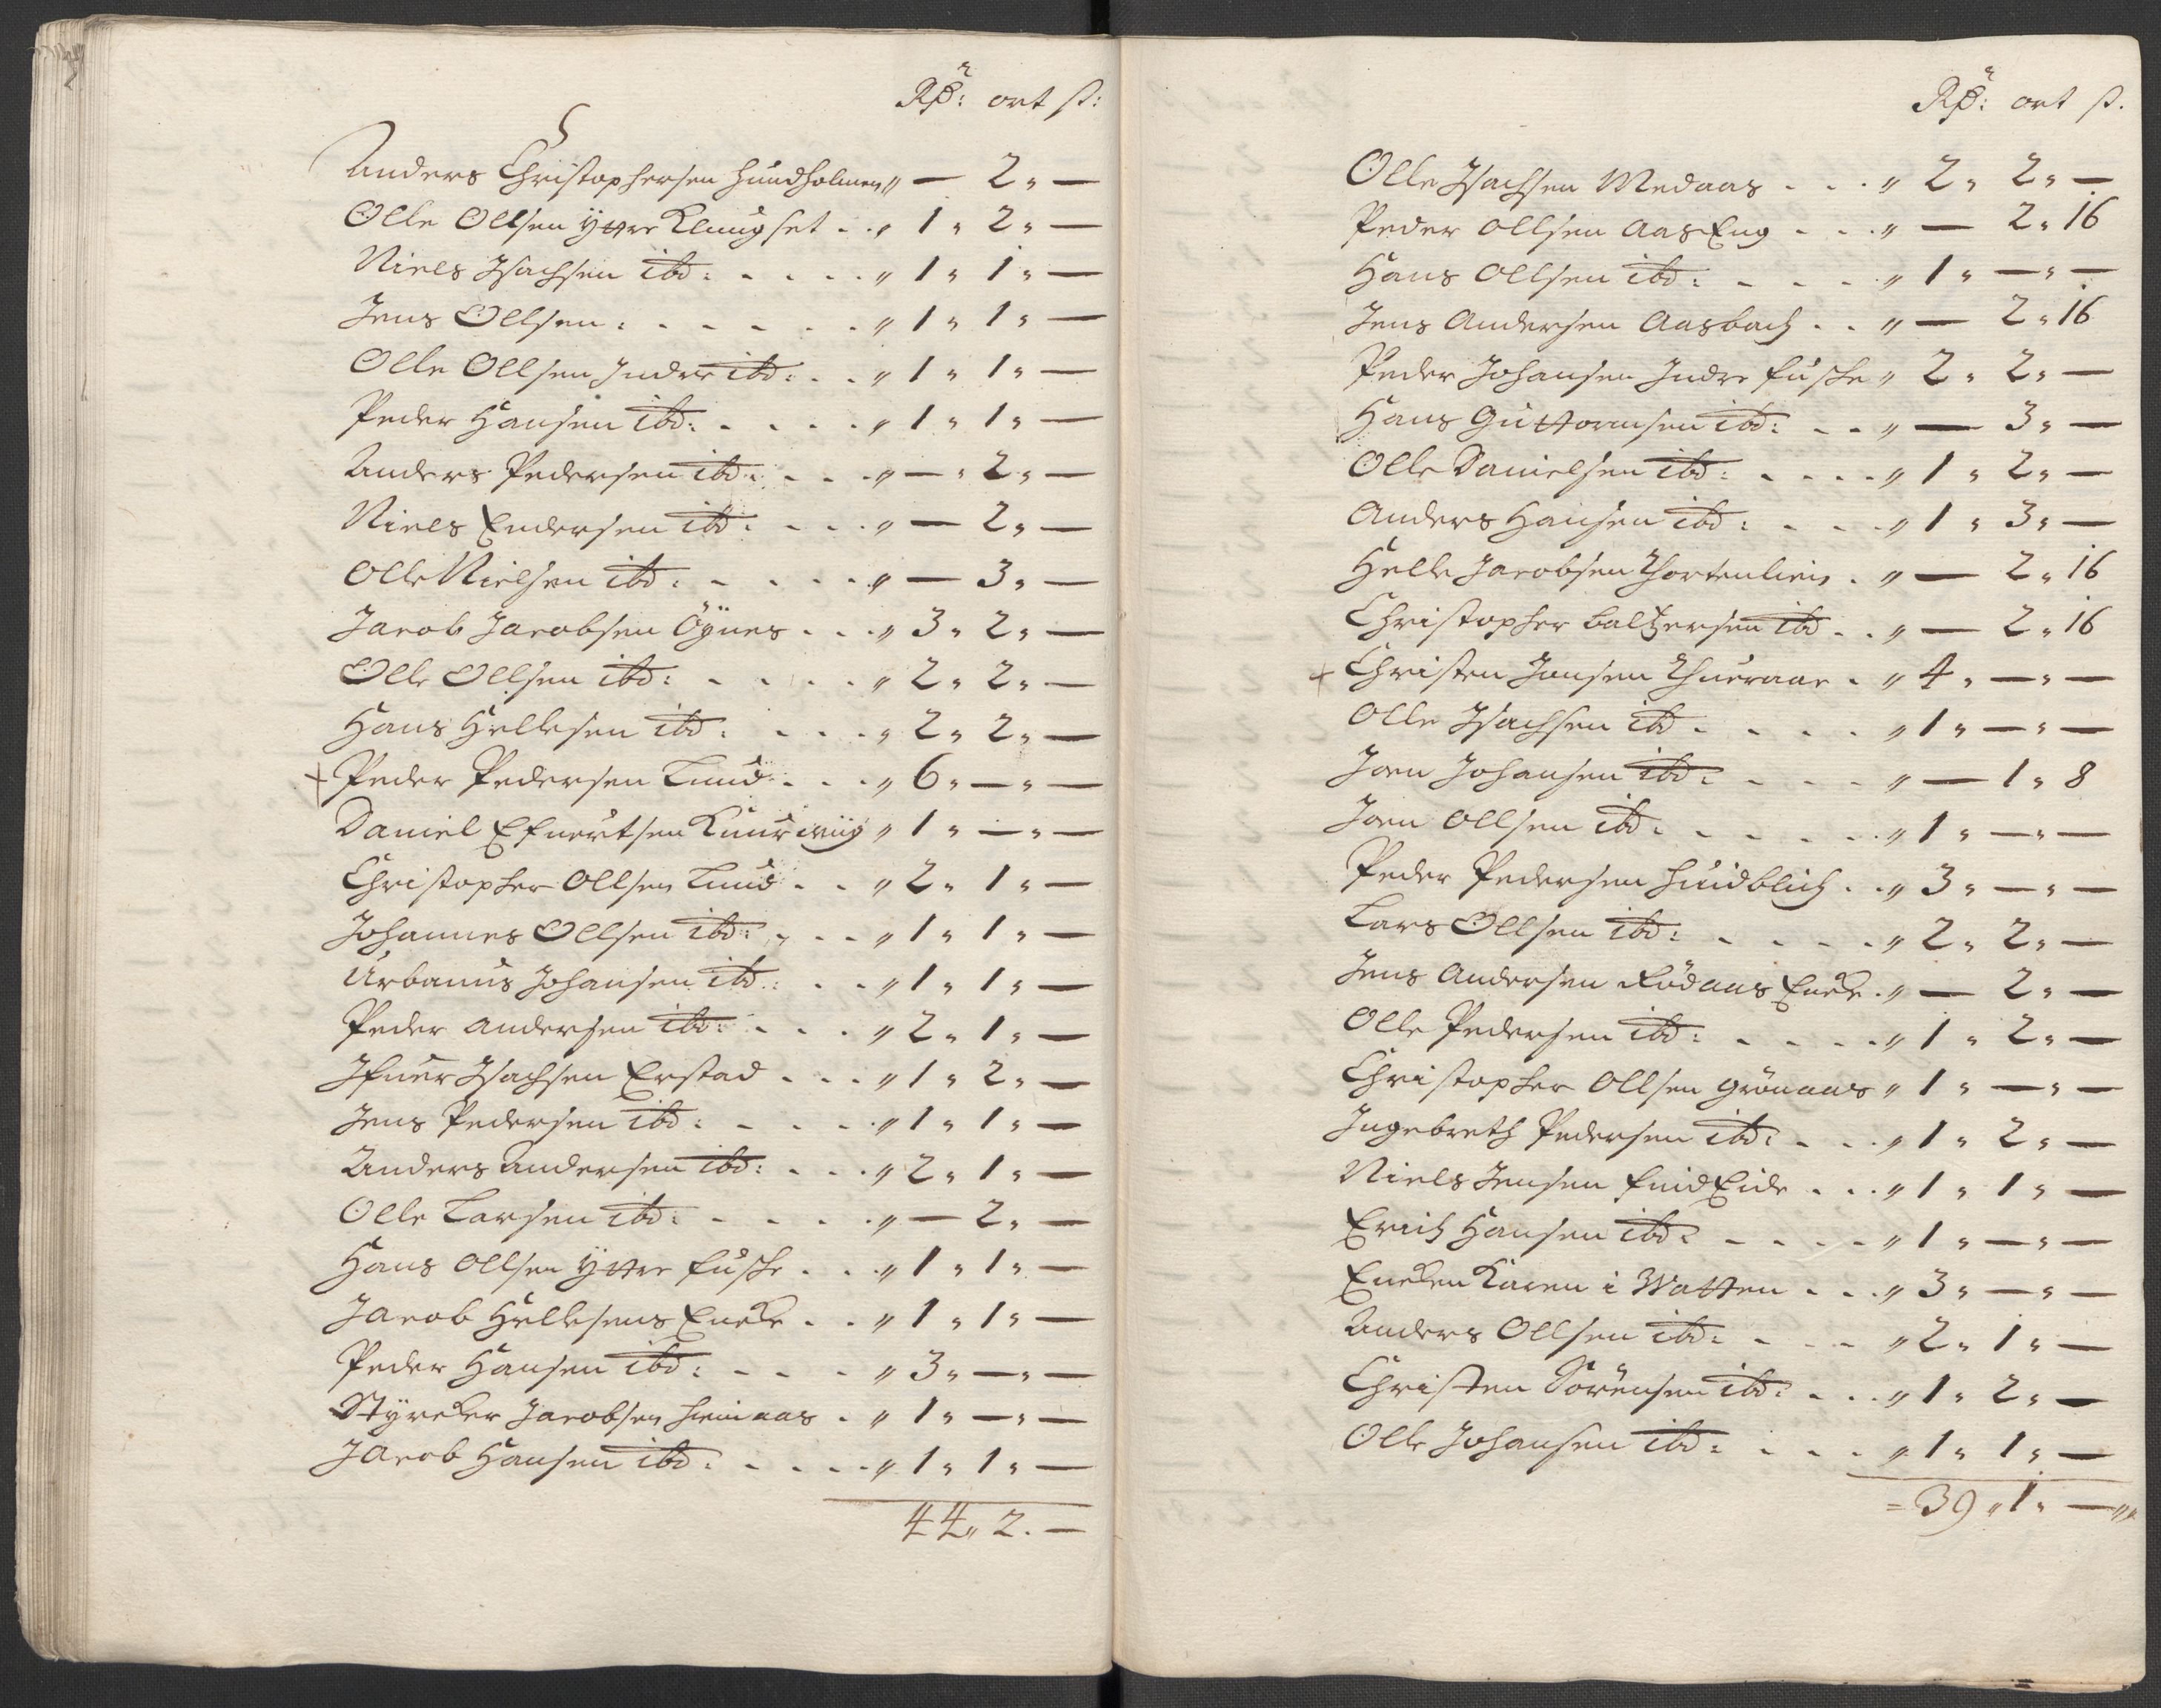 Rdr: ort s:
Anders Christophersen Hundholmen „ — 2 „ —
Olle Ollsen Yttre Klungset . . „ 1 „ 2 „ —
Niels Isachsen ibd: . . . . „ 1 „ 1 „ —
Jens Ollsen . . . . . . „ 1 „ 1 „ —
Olle Ollsen Indre ibd: . . „ 1 „ 1 „ —
Peder Hansen ibd: . . . . „ 1 „ 1 „ —
Anders Pedersen ibd: . . . „ — „ 2 „ —
Niels Endersen ibd: . . . „ — 2 „ —
Olle Nielsen ibd: . . . . „ — 3 „ —
Jacob Jacobsen Öÿnes . . . „ 3 „ 2 „ —
Olle Ollsen ibd: . . . . „ 2 „ 2 „ —
Hans Hellesen ibd: . . . „ 2 „ 2 „ —
+ Peder Pedersen Lund . . . „ 6 „ — „ —
Daniel Efuertsen „ 1 „ — „ —
Christopher Ollsen Lund . . „ 2 „ 1 „ —
Johannes Ollsen ibd: . . . „ 1 „ 1 „ —
Urbanus Johansen ibd: . . „ 1 „ 1 „ —
Peder Andersen ibd: . . . „ 2 „ 1 „ —
Ifuer Isachsen Erstad . . . „ 1 „ 2 „ —
Jens Pedersen ibd: . . . . „ 1 „ 1 „ —
Anders Andersen ibd: . . . „ 2 „ 1 „ —
Olle Larsen ibd: . . . . „ — 2 „ —
Hans Ollsen Yttre Fuske . . „ 1 „ 1 „ —
Jacob Hellesens Encke . . „ 1 „ 1 „ —
Peder Hansen ibd: . . . . „ 3 „ — „ —
Styrcker Jacobsen . „ 1 „ — „ —
Jacob Hansen ibd: . . . . „ 1 „ 1 „ —
44 „ 2 . —
Rdr: ort s.
Olle Isachsen Medaas . . . „ 2 „ 2 „ —
Peder Ollsen Aas Eng . . . „ — 2 „ 16
Hans Ollsen ibd: . . . . „ 1 „ — „ —
Jens Andersen Aasbach . . „ — 2 „ 16
Peder Johansen Indre Fuske „ 2 „ 2 „ —
Hans Guttormsen ibd: . . „ — 3 „ —
Olle Danielsen ibd: . . . . „ 1 „ 2 „ —
Anders Hansen ibd: . . . . „ 1 „ 3 „ —
Helle Jacobsen . „ — 2 „ 16
Christopher Baltzersen ibd . . „ — 2 „ 16
+ Christen Jonsen . „ 4 „ — „ —
Olle Isachsen ibd . . . . „ 1 „ — „ —
Joen Johansen ibd: . . . . „ — 1 „ 8
Joen Ollsen ibd: . . . . . „ 1 „ — „ —
Peder Pedersen Huidblich . . „ 3 „ — „ —
Lars Ollsen ibd: . . . . . „ 2 „ 2 „ —
Jens Andersen Rödaas Encke . „ — 2 „ —
Olle Pedersen ibd: . . . . . „ 1 „ 2 „ —
Christopher Ollsen Grönaas „ 1 „ — „ —
Ingebreth Pedersen ibd: . . . „ 1 „ 2 „ —
Niels Jensen FindEide . . . „ 1 „ 1 „ —
Erich Hansen ibd: . . . . . „ 1 „ — „ —
Encken Karen i Watten . . . „ 3 „ — „ —
Anders Ollsen ibd: . . . „ 2 „ 1 „ —
Christen Sörensen ibd: . . . „ 1 „ 2 „ —
Olle Johansen ibd: . . . . „ 1 „ 1 „ —
= 39 „ 1 „ — „